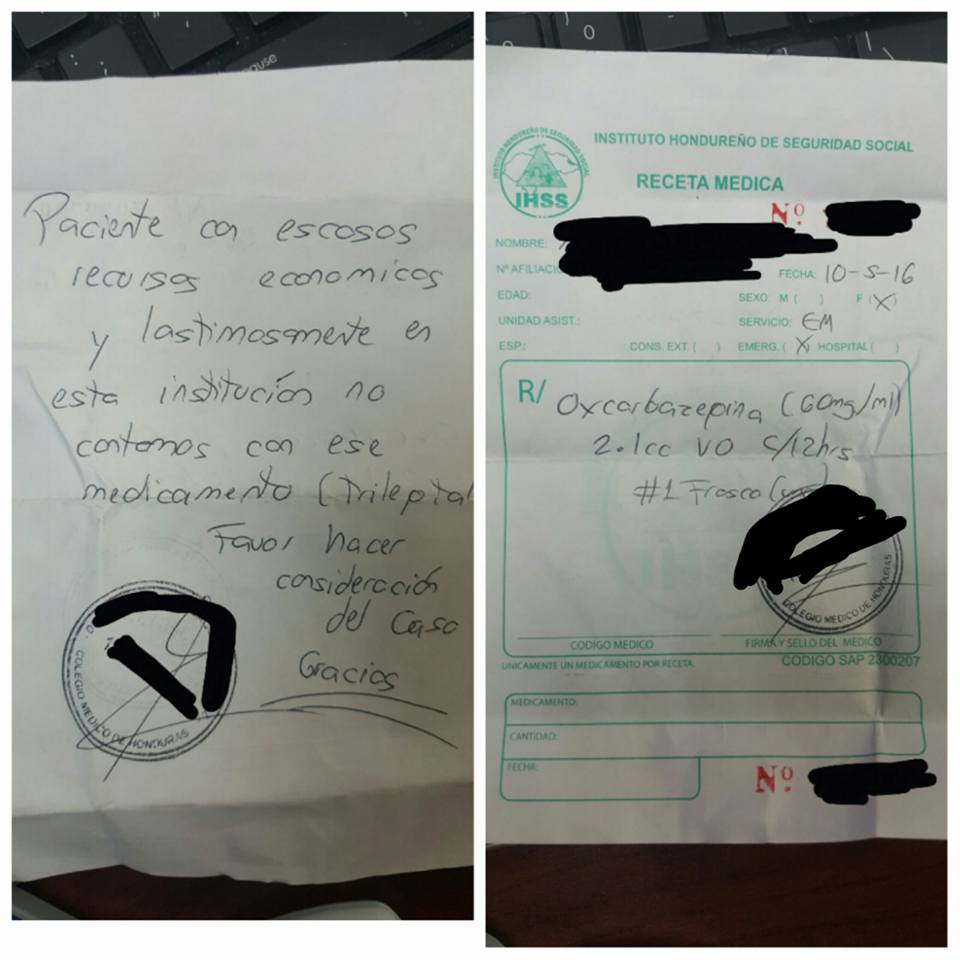 Paciente con escosos
recursos economicos
y lastimosamente en
esta institución no
contamos con ese
medicamento (Trileptal
Favor hacer
consideración
del Caso
Gracias
COLEGIO MEDICO DE HONDURAS
INSTITUTO HONDUREÑO DE SEGURIDAD SOCIAL
INSTITUTO HONDUREÑO DE SEGURIDAD SOCIAL
IHSS
RECETA MEDICA
Nº
NOMBRE:
Nº AFILIACI
FECHA: 10-5-16
EDAD:
SEXO: M ( ) F (X)
UNIDAD ASIST.:
SERVICIO: EM
ESP.: CONS. EXT. ( ) EMERG. (X) HOSPITAL ( )
R/ Oxcarbazepina (60mg/ml)
2.1cc VO c/12hrs
#1 Frasco
COLEGIO MEDICO DE HONDURAS
CODIGO MEDICO FIRMA Y SELLO DEL MEDICO
UNICAMENTE UN MEDICAMENTO POR RECETA. CODIGO SAP 2300207
MEDICAMENTO:
CANTIDAD:
FECHA:
Nº